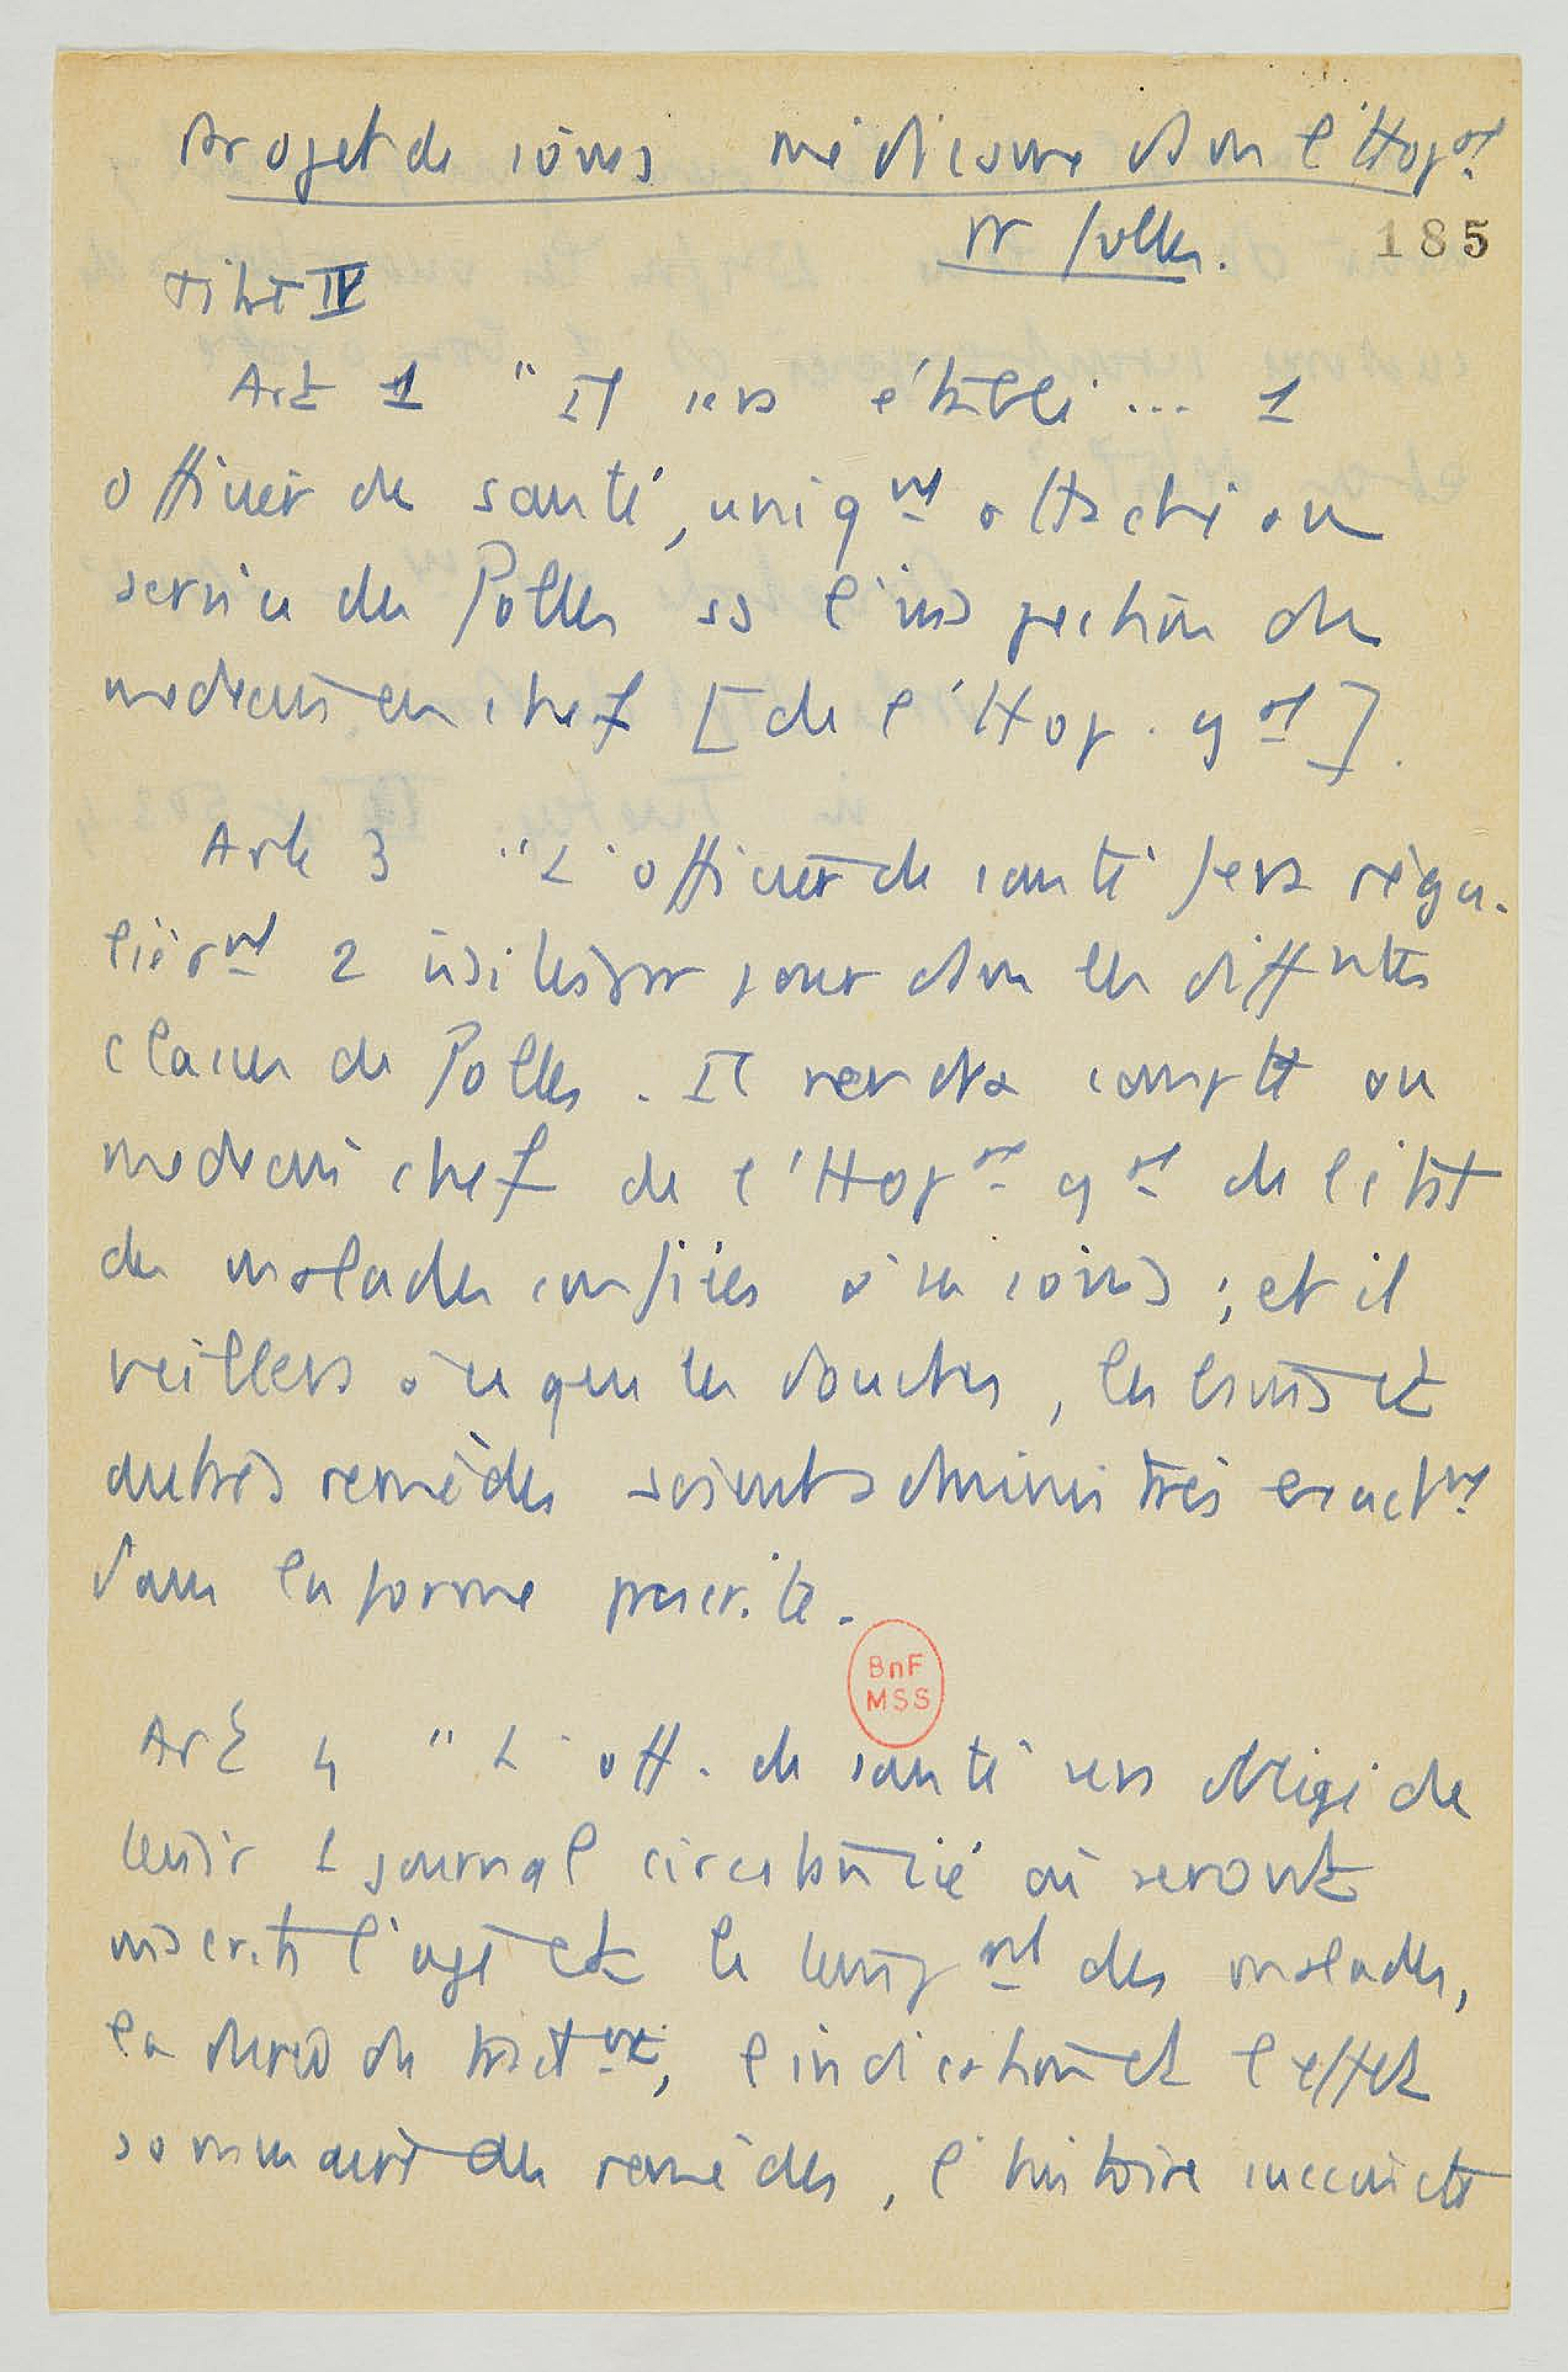 Projet de soins médicaux dans l'Hop al
pr folles.
185
Titre IV
Art 1 " Il sera établi ... 1
officier de santé, uniq nt attaché au
service des folles ss l'inspection du
médecin en chef [de l'Hop. g al].
Art 3 " L'officier de santé fera régu-
lièr nt 2 visites par jour dans les diffntes
classes de folles. Il rendra compte au
médecin chef de l'Hop al g al de l'état
des malades confiées à ses soins ; et il
veillera à ce que les douches, les bains et
autres remèdes soient administrés exact nt
dans la forme prescrite.
BnF
MSS
Art 4 " L'off. de santé sera obligé de
tenir 1 journal circstancié où seront
inscrits l'âge et le temp nt des malades,
la durée du trait nt, l'indication et l'effet
sommaire des remèdes, l'histoire succincte